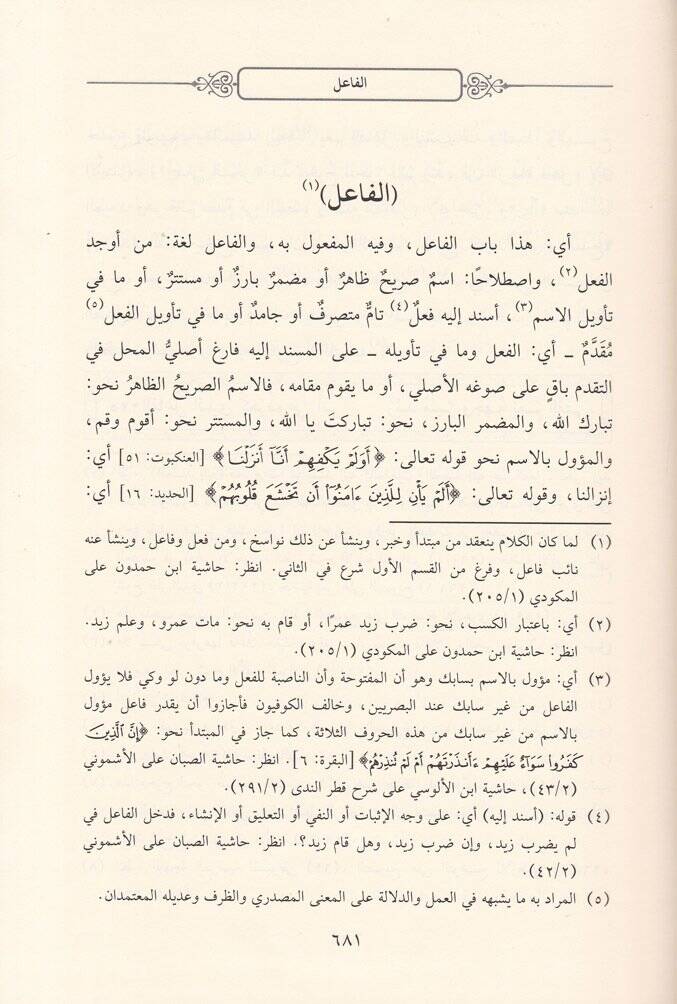 الفاعل
(الفاعل)(١)
أي: هذا باب الفاعل، وفيه المفعول به، والفاعل لغة: من أوجد
الفعل(٢)، واصطلاحًا: اسمٌ صريحٌ ظاهرٌ أو مضمرٌ بارزٌ أو مستترٌ، أو ما في
تأويل الاسم(٣)، أسند إليه فعلٌ(٤) تامٌّ متصرفٌ أو جامدٌ أو ما في تأويل الفعل(٥)
مُقَدَّمٌ ــ أي: الفعل وما في تأويله ــ على المسند إليه فارغ أصليُّ المحل في
التقدم باقٍ على صوغه الأصلي، أو ما يقوم مقامه، فالاسمُ الصريحُ الظاهرُ نحو:
تبارك الله، والمضمر البارز، نحو: تباركتَ يا الله، والمستتر نحو: أقوم وقم،
والمؤول بالاسم نحو قوله تعالى: ﴿أَوَلَمْ يَكْفِهِمْ أَنَّآ أَنزَلْنَا﴾ [العنكبوت: ٥١] أي:
إنزالنا، وقوله تعالى: ﴿أَلَمْ يَأْنِ لِلَّذِينَ ءَامَنُوٓاْ أَن تَخْشَعَ قُلُوبُهُمْ﴾ [الحديد: ١٦] أي:
(١) لما كان الكلام ينعقد من مبتدأ وخبر، وينشأ عن ذلك نواسخ، ومن فعل وفاعل، وينشأ عنه
نائب فاعل، وفرغ من القسم الأول شرع في الثاني. انظر: حاشية ابن حمدون على
المكودي (٢٠٥/١).
(٢) أي: باعتبار الكسب، نحو: ضرب زيد عمرًا، أو قام به نحو: مات عمرو، وعلم زيد.
انظر: حاشية ابن حمدون على المكودي (٢٠٥/١).
(٣) أي: مؤول بالاسم بسابك وهو أن المفتوحة وأن الناصبة للفعل وما دون لو وكي فلا يؤول
الفاعل من غير سابك عند البصريين، وخالف الكوفيون فأجازوا أن يقدر فاعل مؤول
بالاسم من غير سابك من هذه الحروف الثلاثة، كما جاز في المبتدأ نحو: ﴿إِنَّ ٱلَّذِينَ
كَفَرُواْ سَوَآءٌ عَلَيْهِمْ ءَأَنذَرْتَهُمْ أَمْ لَمْ تُنذِرْهُمْ﴾ [البقرة: ٦]. انظر: حاشية الصبان على الأشموني
(٤٣/٢)، حاشية ابن الألوسي على شرح قطر الندى (٢٩١/٢).
(٤) قوله: (أسند إليه) أي: على وجه الإثبات أو النفي أو التعليق أو الإنشاء، فدخل الفاعل في
لم يضرب زيد، وإن ضرب زيد، وهل قام زيد؟. انظر: حاشية الصبان على الأشموني
(٤٢/٢).
(٥) المراد به ما يشبهه في العمل والدلالة على المعنى المصدري والظرف وعديله المعتمدان.
٦٨١